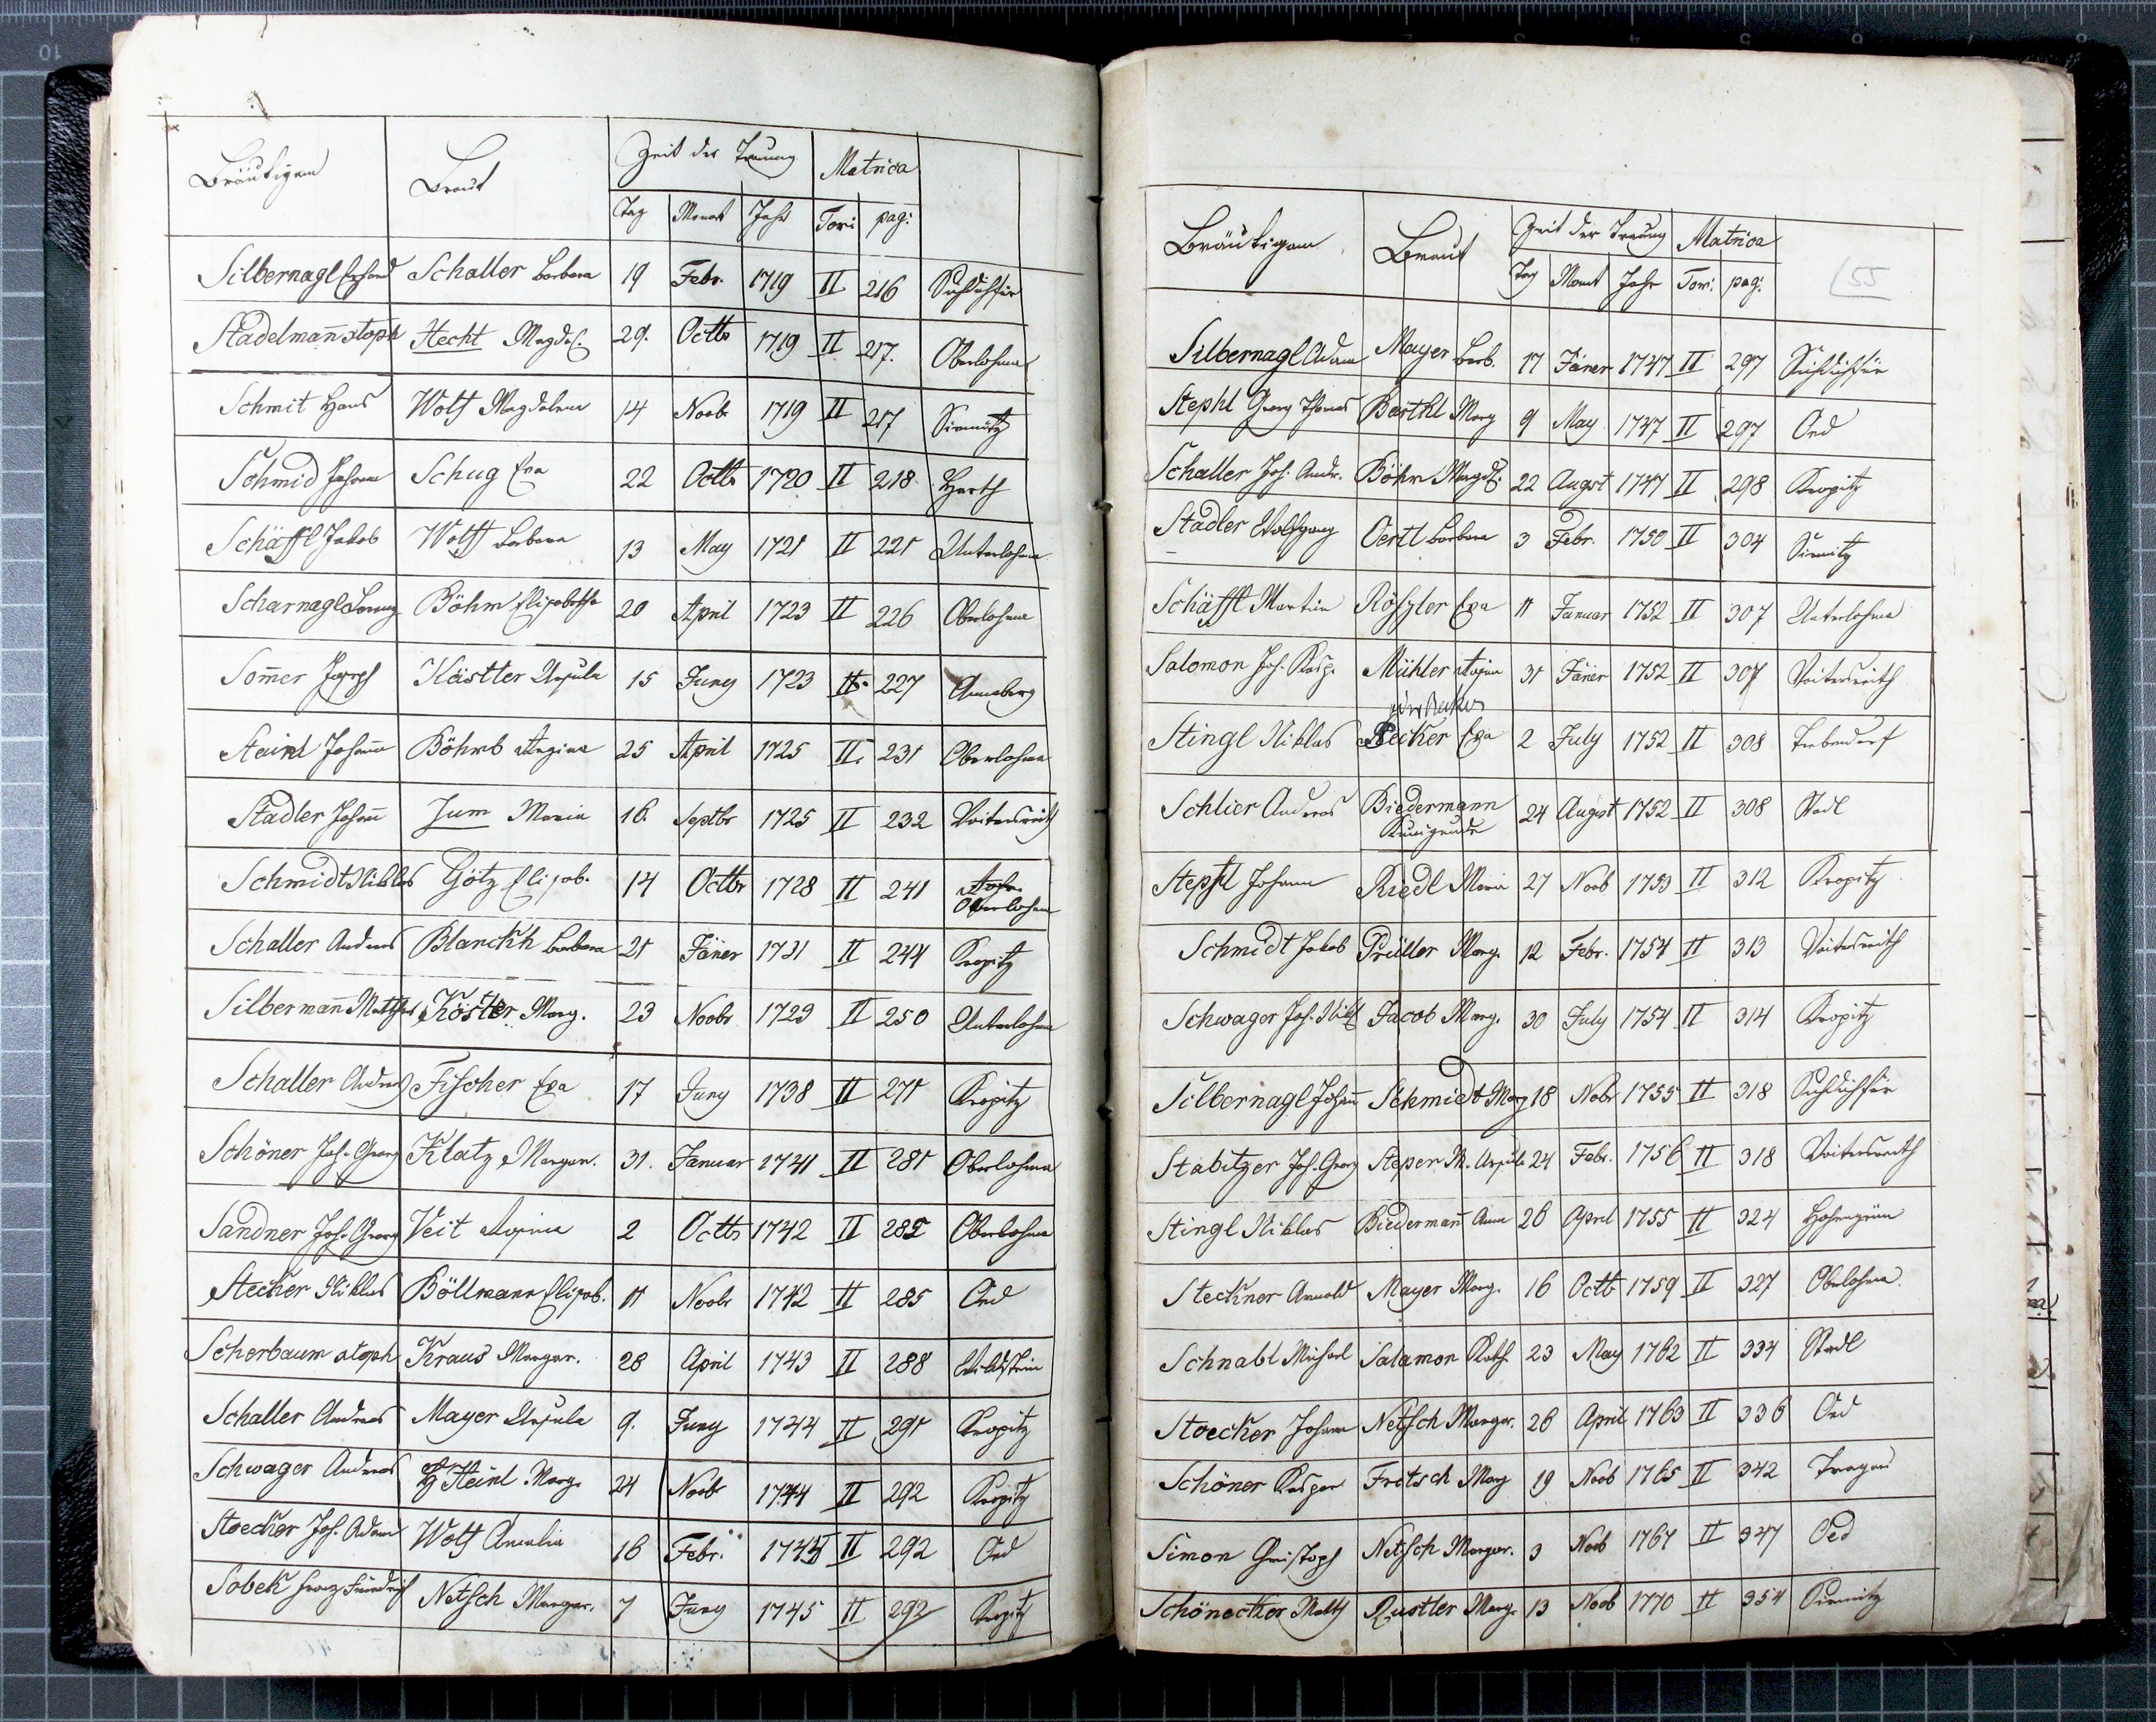 Bräutigam Braut Zeit der Trauung Matrica
Tag Monat Jahr Tomi pag:
Silbernagl Erhard Schaller Barbara 19 Febr. 1719 II 216
Stadelmañ xtoph Hecht Magdal. 29. Octb 1719 II 217. Oberlohma
Schmit Hans Wolf Magdalena 14 Novb 1719 II 217 Sirmitz
Schmid Johann Schug Eva 22 Octb 1720 II 218 Harth
Schäffl Jakob Wolff Barbara 13 May 1721 II 221 Unterlohma
Scharnagl Lorenz Böhm Elisabetha 20 April 1723 II 226 Oberlohma
Som̃er Joseph Kästler Ursula 15 Juny 1723 II. 227 Annaberg
Stainl Johann Böhmb Regina 25 April 1725 II. 231 Oberlohma
Stadler Johañ Zum Maria 16. Septbr 1725 II 232 Voitersreith
Schmidt Niklas Götz Elisab. 14 Octbr 1728 II 241 Oberlohma
Schaller Andreas Blanckh Barbara 21 Jäner 1731 II 244 Kropitz
Silbermañ Mathes Köstler Marg. 23 Novbr 1729 II 250 Unterlohma
Schaller Andreas Fischer Eva 17 Juny 1738 II 271 Kropitz
Schöner Joh. Georg Klatz Margar. 31. Januar 1741 II 281 Oberlohma
Sandner Joh. Georg Veit Rosina 2 Octb 1742 II 285 Oberlohma
Stecker Niklas Böllmann Elisab. 11 Novbr 1742 II 285 Oed
Scherbaum xtoph Kraus Margar. 28 April 1743 II 288 Wildstein
Schaller Andreas Mayer Ursula 9. Juny 1744 II 291 Kropitz
Schwager Andreas Heinl Marg. 24 Novb 1744 II 292 Kropitz
Stoecker Joh. Adam Wolf Amalia 16 Febr. 1745 II 292 Oed
Sobek Franz Friedrich Netsch Margar. 7 Juny 1745 II 292 Kropitz
Bräutigam Braut Zeit der Trauung Matrica
Tag Monat Jahr Tomi pag. 55
Silbernagl Adam Mayer Barb. 17 Jäner 1747 II 297
Stephl Georg Thomas Barthl Marg 9 May 1747 II 297 Oed
Schaller Joh. Andr. Böhm Magdl. 22 Augst 1747 II 298 Kropitz
Stadler Wolfgang Oertl Barbara 3 Febr. 1750 II 304 Sirmitz
Schäffl Martin Rößler Eva 11 Januar 1752 II 307 Unterlohma
Salomon Joh. Kasp. Mühler Rosina 31 Jäner 1752 II 307 Voitersreith
Stingl Niklas Becker Eva 2 July 1752 II 308 Trebendorf
Schlier Andreas Biedermann 24 August 1752 II 308 Stadl
Kunigunde
Stepfl Johann Riedl Maria 27 Novb 1753 II 312 Kropitz
Schmidt Jakob Prüller Marg. 12 Febr. 1754 II 313 Voitersreith
Schwager Joh. Nikl Jacob Marg. 30 July 1754 II 314 Kropitz
Silbernagl Johañ Schmidt Marg 18 Nobr 1755 II 318
Stabitzer Joh. Georg Steper M. Ursula 24 Febr. 1756 II 318 Voitersreith
Stingl Niklas Biedermañ Anna 26 April 1755 II 324
Steckner Arnold Mayer Marg. 16 Octb 1759 II 327 Oberlohma.
Schnabl Michael Salamon Kath. 23 May 1762 II 334 Stadl
Stoecker Johann Netsch Margar. 26 April 1763 II 336 Oed
Schöner Kaspar Fritsch Marg 19 Novb 1765 II 342 Tragau
Simon Christoph Netsch Margar. 3 Novb 1767 II 347 Oed
Schönecker Math Rustler Marg. 13 Novb 1770 II 354 Sirmitz